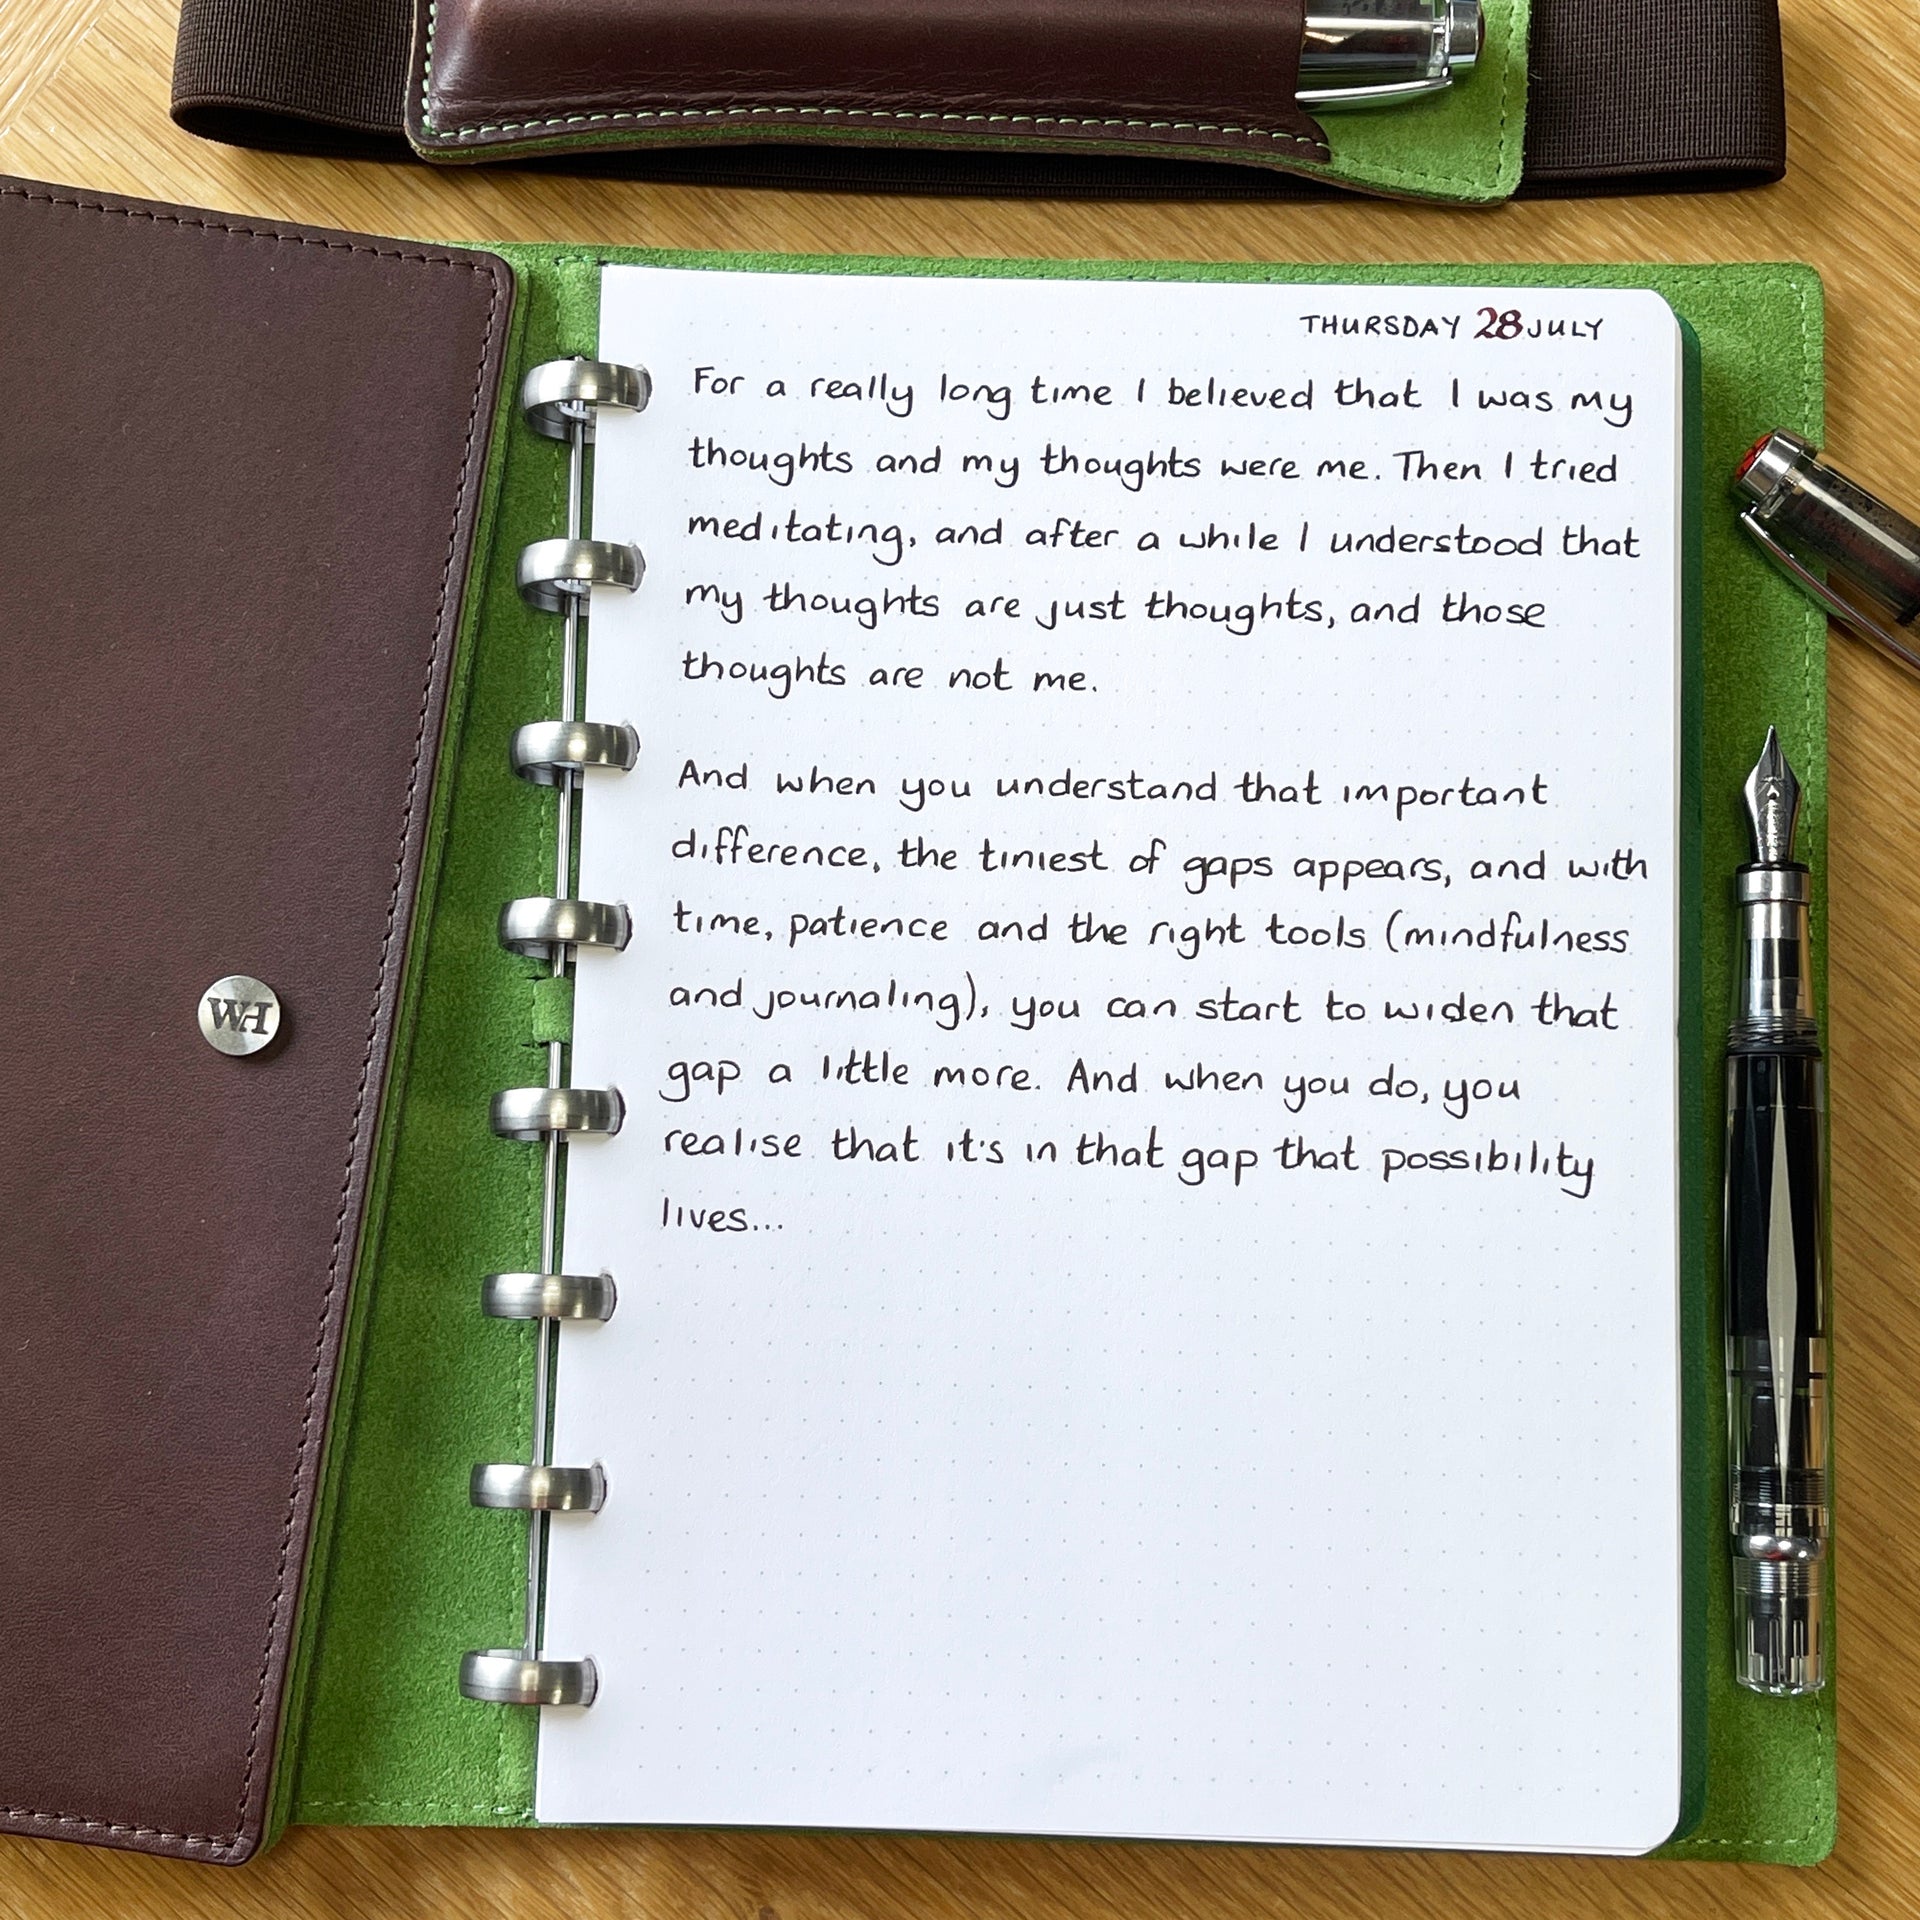 THURSDAY 28 JULY
For a really long time I believed that I was my
thoughts and my thoughts were me. Then I tried
meditating, and after a while I understood that
my thoughts are just thoughts, and those
thoughts are not me.
And when you understand that important
difference, the tiniest of gaps appears, and with
time, patience and the right tools (mindfulness
and journaling), you can start to widen that
gap a little more. And when you do, you
realise that it's in that gap that possibility
lives...
WH